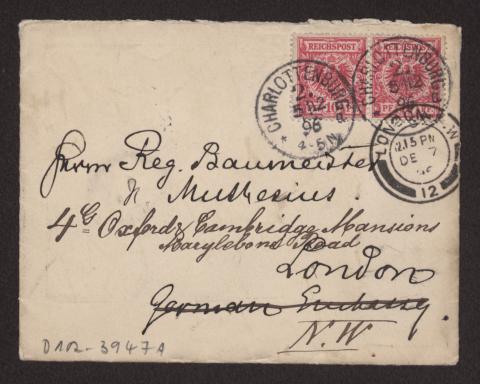 REICHSPOST REICHSPOST
CHARLOTTENBURG
5 12
96
4-5N
CHARLOTTENBURG
5 12
96
LONDON N.W
12.15 PM
DE 7
96
12
Herrn Reg. Baumeister
H Muthesius
4G Oxford & Cambridge Mansions
Marylebone Road
London
German Embassy
N.W
D 102-3947A